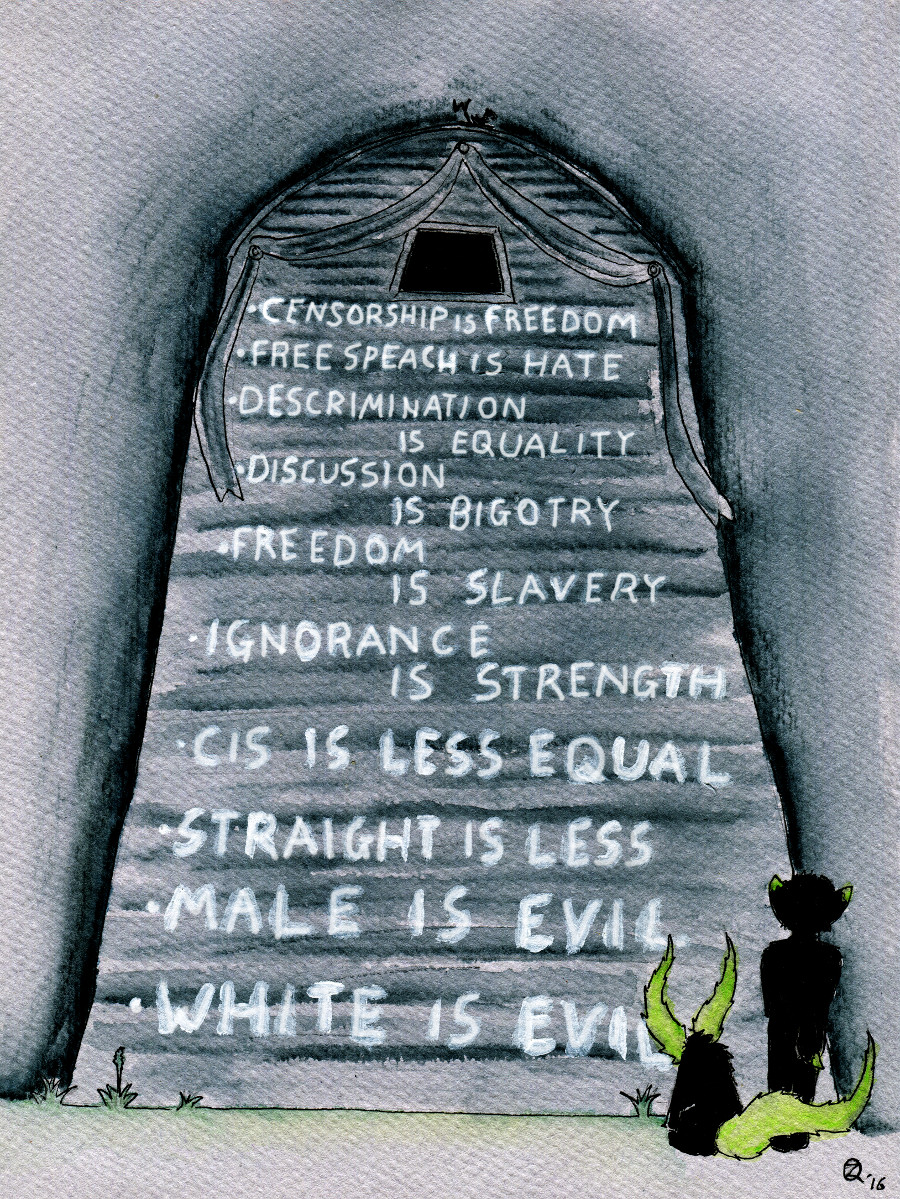 •CENSORSHIP IS FREEDOM
•FREE SPEACH IS HATE
•DESCRIMINATION
IS EQUALITY
•DISCUSSION
IS BIGOTRY
•FREEDOM
IS SLAVERY
•IGNORANCE
IS STRENGTH
•CIS IS LESS EQUAL
•STRAIGHT IS LESS
•MALE IS EVIL
•WHITE IS EVIL
'16